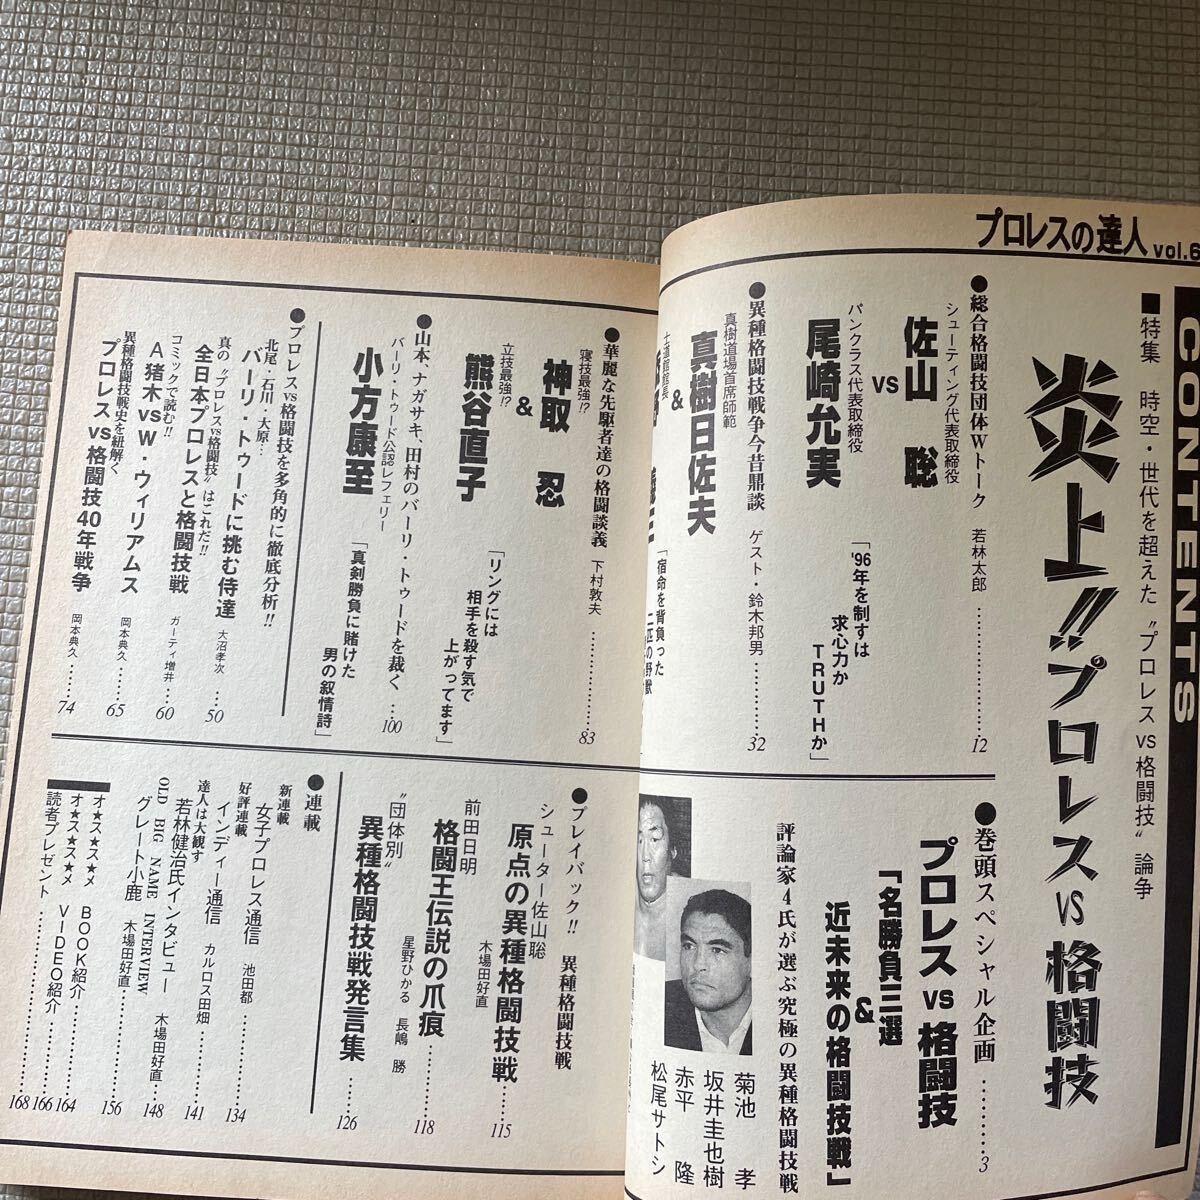 プロレスの達人 vol.6
CONTENTS
■特集 時空・世代を超えた〝プロレスvs格闘技〟論争
炎上!!プロレスvs格闘技
●総合格闘技団体Wトーク 若林太郎…………12
シューティング代表取締役
佐山 聡
vs
パンクラス代表取締役
尾崎允実
「'96年を制すは
求心力か
TRUTHか」
●異種格闘技戦争今昔鼎談 ゲスト・鈴木邦男…………32
真樹道場首席師範
真樹日佐夫
&
士道館館長
「宿命を背負った
●巻頭スペシャル企画………3
プロレスvs格闘技
「名勝負三選
&
近未来の格闘技戦」
評論家4氏が選ぶ究極の異種格闘技戦
菊池 孝
坂井圭也樹
赤平 隆
松尾サトシ
●華麗な先駆者達の格闘談義 下村敦夫…………83
寝技最強!?
神取 忍
&
立技最強!?
熊谷直子
「リングには
相手を殺す気で
上がってます」
●山本、ナガサキ、田村のバーリ・トゥードを裁く…100
バーリ・トゥード公認レフェリー
小方康至
「真剣勝負に賭けた
男の叙情詩」
●プロレスvs格闘技を多角的に徹底分析!!
北尾・石川・大原…
バーリ・トゥードに挑む侍達 大沼孝次…50
真の〝プロレスvs格闘技〟はこれだ!!
全日本プロレスと格闘技戦 ガーディ増井…60
コミックで読む!!
A猪木vsW・ウィリアムス 岡本典久……65
異種格闘技戦史を紐解く
プロレスvs格闘技40年戦争 岡本典久……74
●プレイバック!! 異種格闘技戦
シューター佐山聡
原点の異種格闘技戦 木場田好直……115
前田日明
格闘王伝説の爪痕 星野ひかる 長嶋 勝……118
〝団体別〟
異種格闘技戦発言集……126
●連載
新連載
女子プロレス通信 池田都……134
好評連載
インディー通信 カルロス田畑……141
達人は大観す
若林健治氏インタビュー 木場田好直…148
OLD BIG NAME INTERVIEW
グレート小鹿 木場田好直……156
オ★ス★ス★メ BOOK紹介……164
オ★ス★ス★メ VIDEO紹介……166
読者プレゼント……168